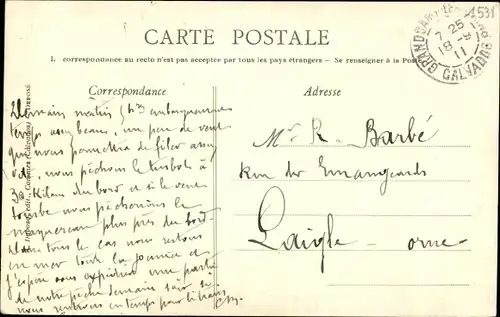 CARTE POSTALE
La correspondance au recto n'est pas acceptée par tous les pays étrangers — Se renseigner à la Poste
Correspondance
Adresse
GRANDCAMP-LES-BAINS
7 25
18-9
11
CALVADOS
1531
Demain matin 5h embarquement
temps assez beau, un peu de vent
que nous permettra de filer assez
vite, nous pêchrons le turbot à
30 Kilom du bord et si le vent
tombe nous pêcherons le
maquereau plus près du bord
Dans tous le cas nous restons
en mer toute la journée et
j'espère vous expédier une partie
de notre pêche demain soir si
nous rentrons en temps pour le train
Mr R. Barbé
Rue des Emangeards
Laigle - Orne